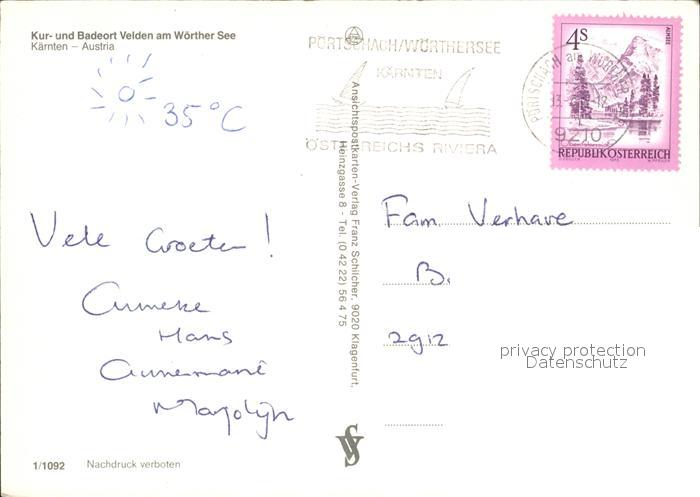 Kur- und Badeort Velden am Wörther See
Kärnten – Austria
35°C
Vele Groeten!
Anneke
Hans
Annemarié
Marjolijn
1/1092 Nachdruck verboten
Ansichtspostkarten-Verlag Franz Schilcher, 9020 Klagenfurt,
Heinzgasse 8 - Tel. (0 42 22) 56 4 75
PÖRTSCHACH/WÖRTHERSEE
KÄRNTEN
ÖSTERREICHS RIVIERA
PÖRTSCHACH am
9210
4S
ALMSEE
REPUBLIK ÖSTERREICH
Fam. Verhave
B.
2912
privacy protection
Datenschutz